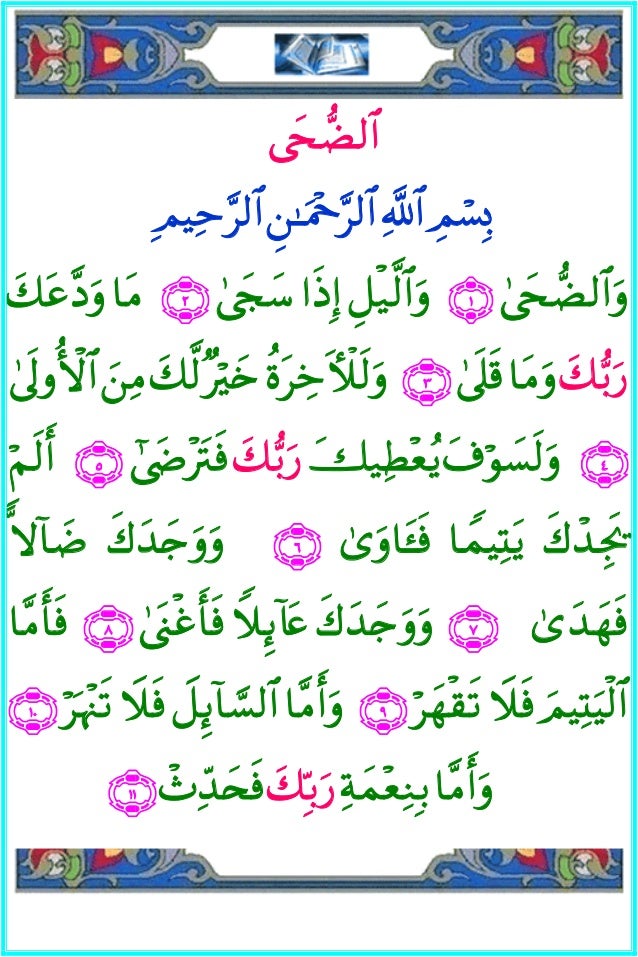 ٱلضُّحَى
بِسْمِ ٱللَّهِ ٱلرَّحْمَـٰنِ ٱلرَّحِيمِ
وَٱلضُّحَىٰ ١ وَٱلَّيْلِ إِذَا سَجَىٰ ٢ مَا وَدَّعَكَ
رَبُّكَ وَمَا قَلَىٰ ٣ وَلَلْأَخِرَةُ خَيْرٌ لَّكَ مِنَ ٱلْأُولَىٰ
٤ وَلَسَوْفَ يُعْطِيكَ رَبُّكَ فَتَرْضَىٰٓ ٥ أَلَمْ
يَجِدْكَ يَتِيمًا فَـَٔاوَىٰ ٦ وَوَجَدَكَ ضَآلًّا
فَهَدَىٰ ٧ وَوَجَدَكَ عَآئِلًا فَأَغْنَىٰ ٨ فَأَمَّا
ٱلْيَتِيمَ فَلَا تَقْهَرْ ٩ وَأَمَّا ٱلسَّآئِلَ فَلَا تَنْهَرْ ١٠
وَأَمَّا بِنِعْمَةِ رَبِّكَ فَحَدِّثْ ١١